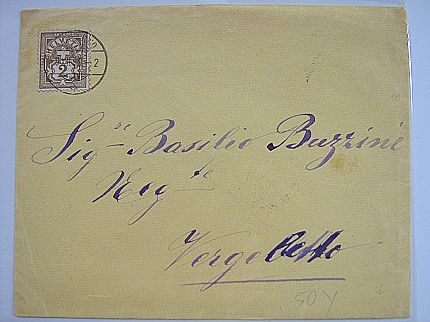 HELVETIA
2
2
Sig.re Basilio Buzzini
Neg.te
Vergeletto
50 Y